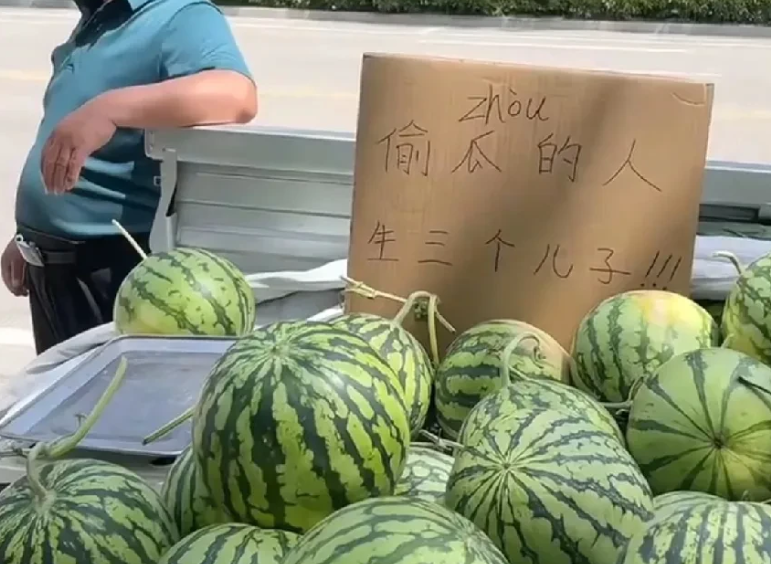 zhòu
偷瓜的人
生三个儿子!!!